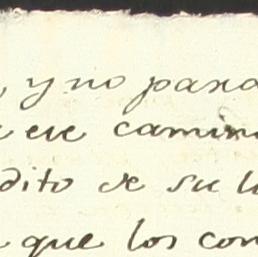 y no para
ese camino
dito de su l
que los con